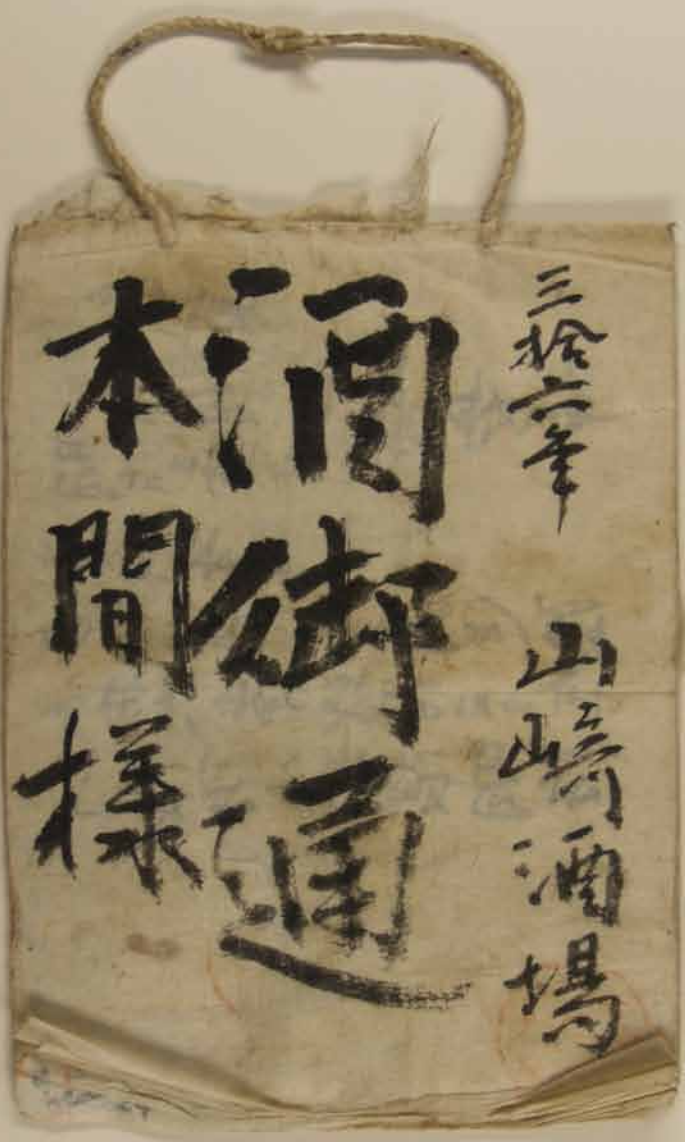 三拾六年 山崎酒場
酒御通
本間様